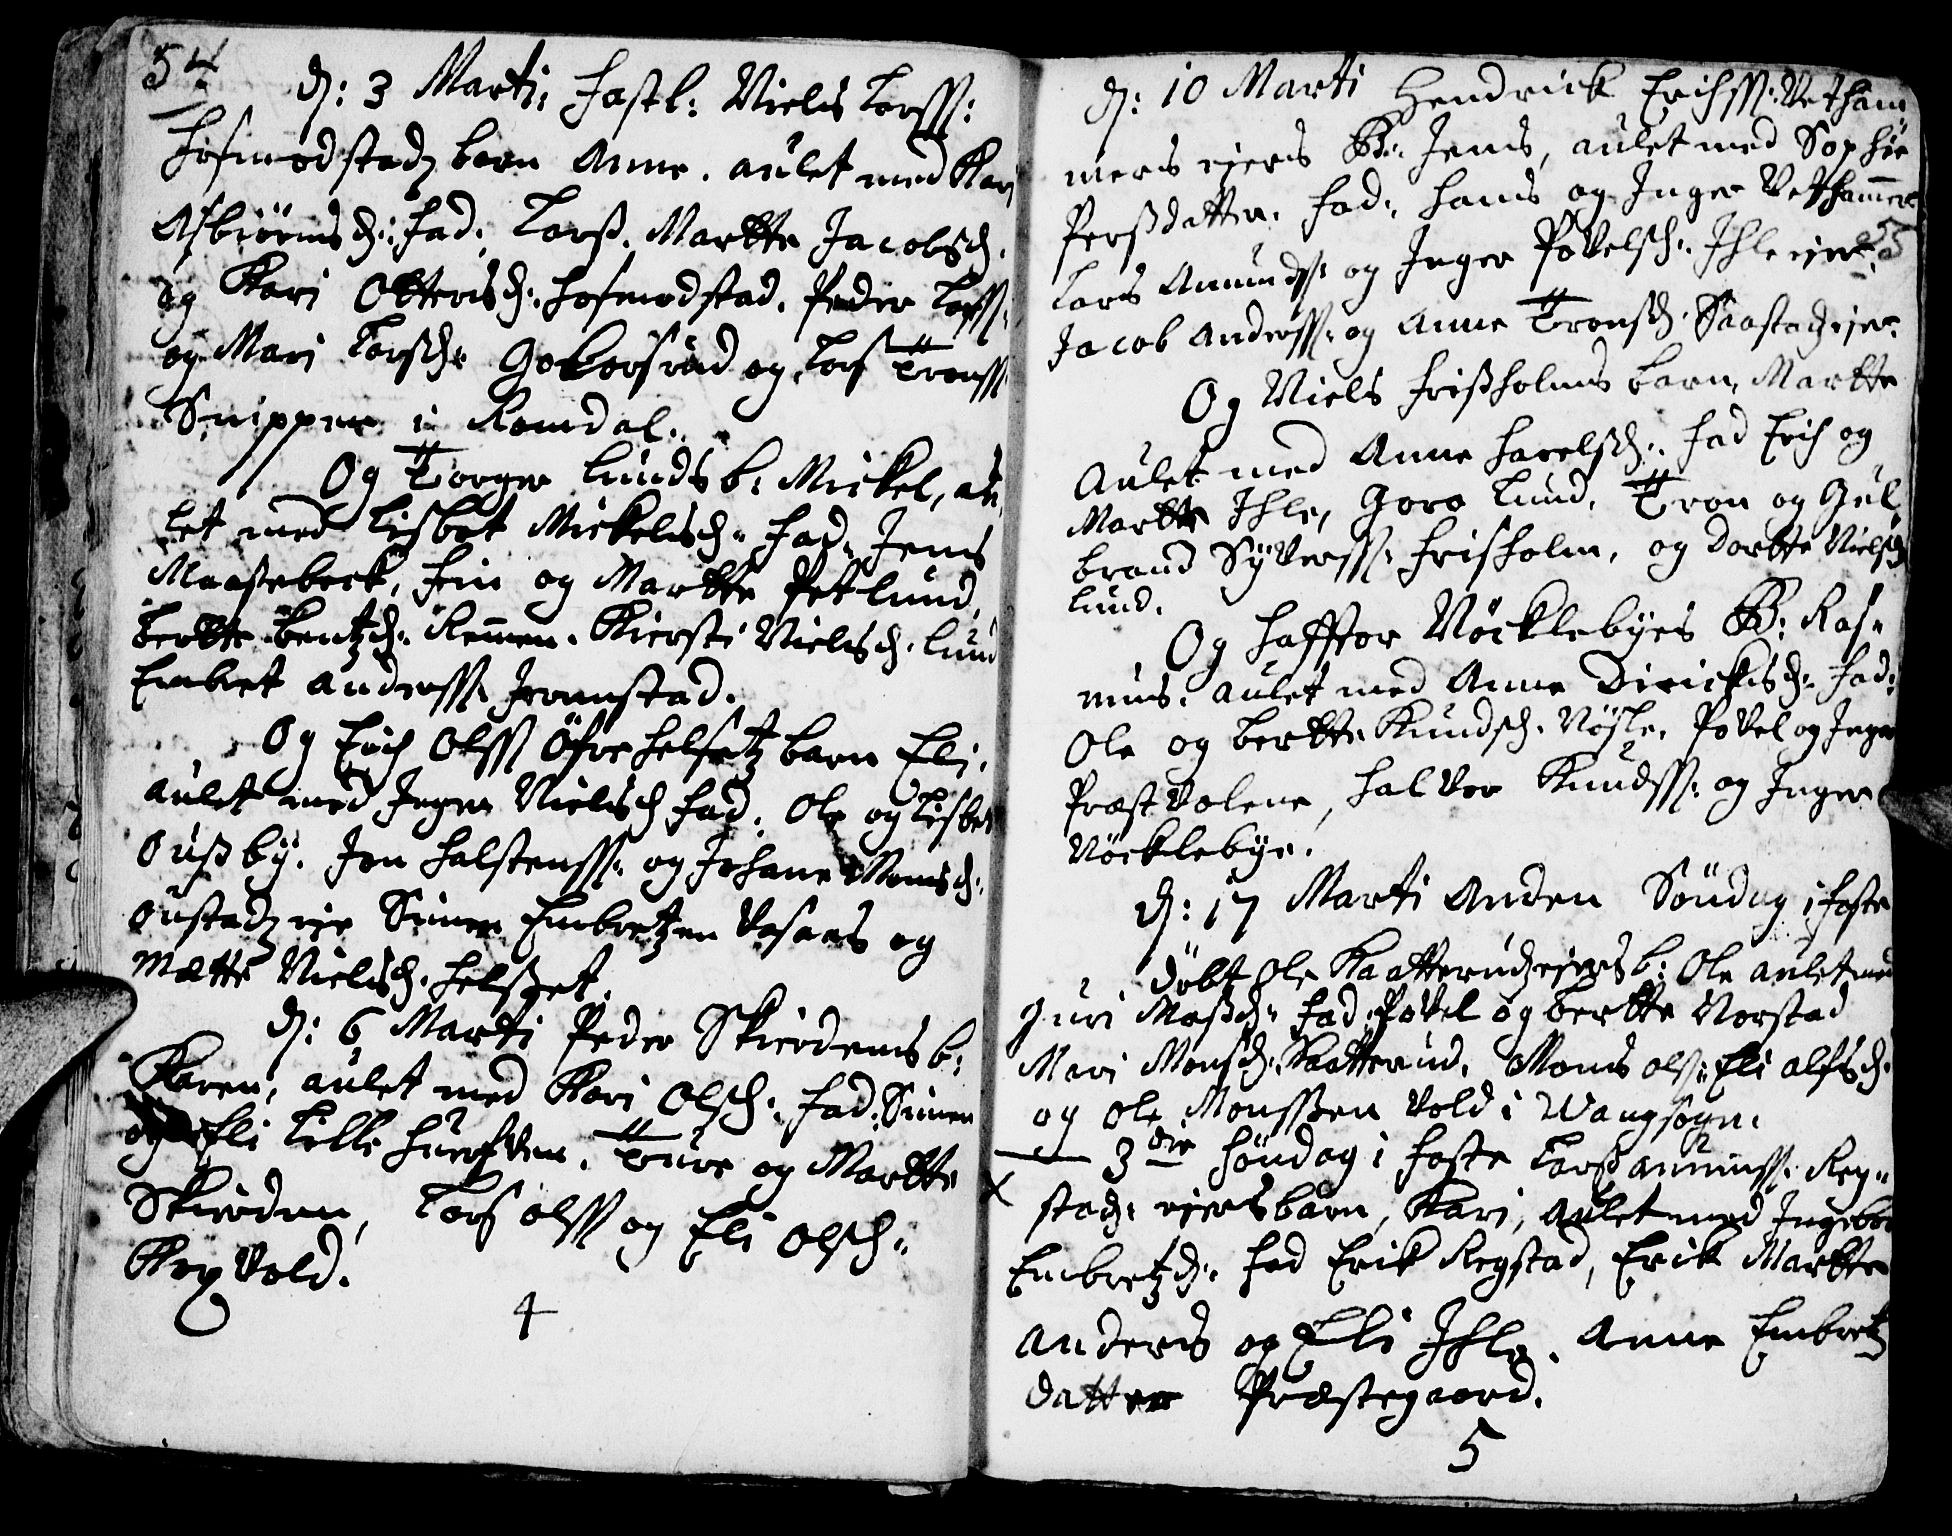 54
d: 3 Marti: fastl: Niels Larss:
Hofmodstadz barn Anne. aulet med Kari
Asbiörnsd: fad: Larss. Marthe Jacobsd.
og Kari Ottersd: Hofmodstad. Peder Larss:
og Mari Larsd: Gokorsrud og Lars Tronss:
Snippen i Romdal.
Og Torger Lunds b: Mickel, au,
let med Lisbet Mickelsd: fad: Jens
Maasebeck, Finn og Marthe Petlund,
Berthe Bentzd: Remmen. Kiersti Nielsd. Lund
Embret Anderss: Jronstad.
Og Erich Olss Öfre Helsetz barn Eli.
aulet med Inger Nielsd fad. Ole og Lisbet
Ousby. Jon Halstenss: og Johane Monsd:
Oustadz eie Simen Embretzen Aasaas og
Mætte Nielsd: Helset.
d: 6 Marti Peder Skierdens b:
Karen, aulet med Kari Olsd: fad. Simen
og Eli Lille Huusven. Ture og Marthe
Skierden, Lars Olss og Eli Olsd:
Kexvold.
4
d: 10 Marti Hendrick Erichss: Vetham,
mers eiers B: Jens, aulet med Sophie
Perssdatter. fad: Hans og Inger Vethammer
55
Lars Amunds: og Inger Povelsd: Ihle eier.
Jacob Anderss: og Anne Tronsd: Saastadz eier.
Og Niels Frissholms barn, Marthe
Aulet med Anne Harelsd: fad Erich og
Marthe Ihle, Goro Lund, Tron og Gul,
brand Syverss: Frisholm, og Dorthe Nielsd
Lund.
Og Haffstor Nöcklebyes B: Ras-
mus. aulet med Anne Dirichsd: fad:
Ole og Berthe Knudsd: Nøsle, Povel og Inger
Præstvolene, Halvor Knudss: og Inger
Nöcklebye.
d: 17 Marti Anden Söndag i faste
döbt Ole Kaatterudz eiers b: Ole aulet med
Guri Massd: fad. Povel og Berthe Norstad
Mari Monsd: Kaatterud. Mons Ols: Eli Alfsd:
og Ole Monssen Vold i Wangsogn.
3die Söndag i faste Lars Amunss: Reg-
X
stadz eiers barn, Kari, Aulet med Ingebor
Embretzd: fad Erik Regstad, Erik Marthe
Anders og Eli Ihle. Anne Embretz
datter Præstegaard.
5